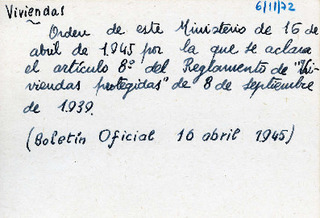 Viviendas
6/11/72
Orden de este Ministerio de 16 de
abril de 1945 por la que se aclara
el artículo 8º del Reglamento de "Vi-
viendas protegidas" de 8 de septiembre
de 1939.
(Boletín Oficial 16 abril 1945)